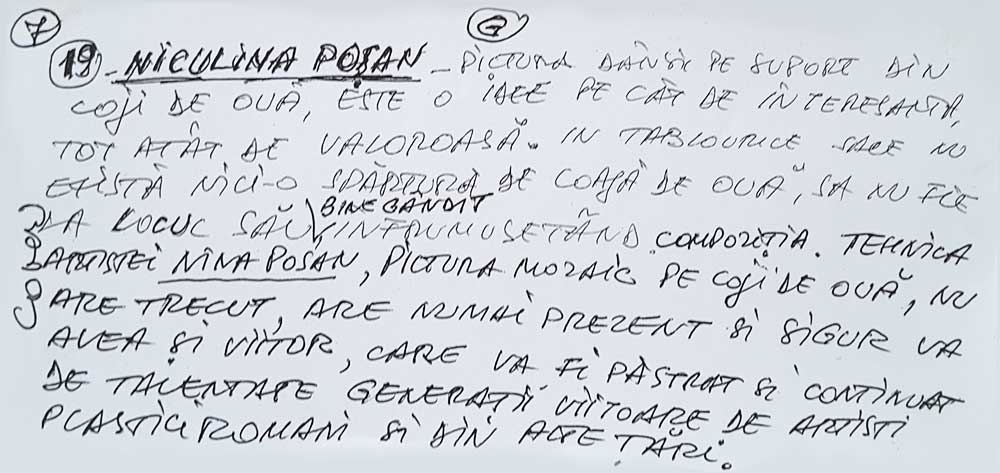 7 G
19 - NICULINA POSAN - PICTURA DÂNSEI PE SUPORT DIN
COJI DE OUĂ, ESTE O IDEE PE CÂT DE INTERESANTĂ,
TOT ATÂT DE VALOROASĂ. IN TABLOURILE SALE NU
EXISTĂ NICI-O SPĂRTURĂ DE COAJĂ DE OUĂ, SĂ NU FIE
LA LOCUL SĂU
BINE GÂNDIT
INFRUMUSETÂND COMPOZIȚIA. TEHNICA
ARTISTEI NINA POSAN, PICTURA MOZAIC PE COJI DE OUĂ, NU
ARE TRECUT, ARE NUMAI PREZENT ȘI SIGUR VA
AVEA ȘI VIITOR, CARE VA FI PĂSTRAT ȘI CONTINUAT
DE TALENTATE GENERAȚII VIITOARE DE ARTISTI
PLASTICI ROMANI ȘI DIN ALTE ȚĂRI.